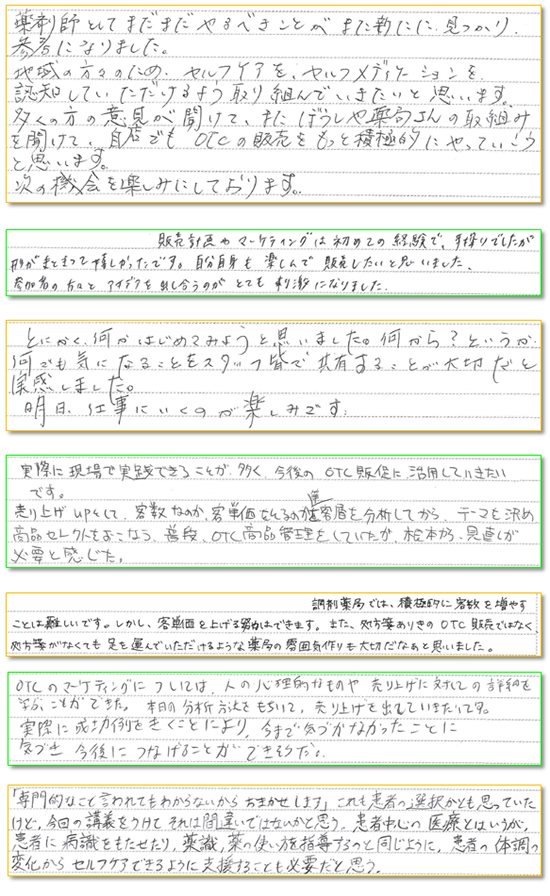 薬剤師としてまだまだやるべきことがまた新たに見つかり、
参考になりました。
地域の方々のため、セルフケアを、セルフメディケーションを
認知していただけるよう取り組んでいきたいと思います。
多くの方の意見が聞けて、また ぼうしや薬局さんの取組み
を聞けて、自店でも OTCの販売をもっと積極的にやっていこう
と思います。
次の機会を楽しみにしております。
販売計画やマーケティングは初めての経験で、手探りでしたが
形がまとまって嬉しかったです。自分自身も楽しんで販売したいと思いました。
参加者の方々とアイデアを出し合うのがとても刺激になりました。
とにかく、何かはじめてみようと思いました。何から？というか、
何でも気になることをスタッフ皆で共有することが大切だと
実感しました。
明日、仕事にいくのが楽しみです。
実際に現場で実践できることが多く、今後のOTC販促に活用していきたい
です。
売り上げupとして、客数なのか、客単価なのか客層を分析してから、テーマを決め
商品セレクトをおこなう、普段、OTC商品管理をしていたが、根本から見直しが
必要と感じた。
調剤薬局では、積極的に客数を増やす
ことは難しいです。しかし、客単価を上げる努力はできます。また、処方箋ありきのOTC販売ではなく、
処方箋がなくても足を運んでいただけるような薬局の雰囲気作りも大切だなぁと思いました。
OTCのマーケティングについては、人の心理的なものや売り上げに対しての詳細を
学ぶことができた。本日の分析方法をもちいて、売り上げを出していきたいです。
実際に成功例をきくことにより、今まで気づかなかったことに
気づき 今後につなげることができそうだ。
「専門的なこと言われてもわからないからおまかせします」これも患者の選択かとも思っていた
けど、今回の講義をうけて それは間違いではないかと思う。患者中心の医療とはいうが、
患者に病識をもたせたり、薬識、薬の使い方を指導するのと同じように、患者の体調の
変化からセルフケアできるように支援することも必要だと思う。